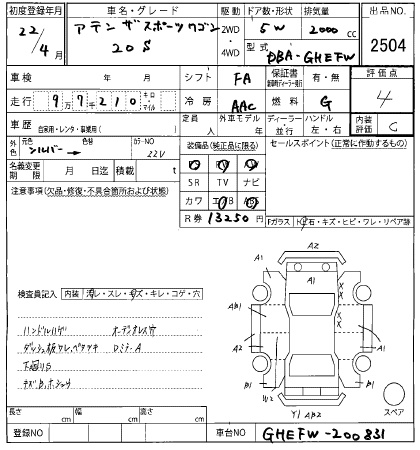 初度登録年月 車名・グレード 駆動 ドア数・形状 排気量 出品NO.
22/4月 アテンザスポーツワゴン 2WD 5W 2000cc
20S ・4WD 型式 DBA-GHEFW 2504
車検 年 月 シフト FA 保証書 有・無 評価点
走行 9万7千210 キロ・マイル 冷房 AAC 燃料 G 4
車歴 自家用・レンタ・事業用( ) 定員 人 外車モデル 年 ディーラー・並行 ハンドル 左・右 内装評価 C
外色 元色 シルバー→ 色替 カラーNO 22V 装備品(純正品に限る) セールスポイント(正常に作動するもの)
名義変更期限 月 日迄 積載 t
SR TV ナビ
注意事項(欠品・修復・不具合箇所および状態) カワ エアB ABS
R券 13250円
Fガラス 飛石・キズ・ヒビ・ワレ・リペア跡
A2
A1 A1
検査員記入 内装 汚レ・スレ・キズ・キレ・コゲ・穴
X
X
AB1 A1
ハンドルハゲ オーディオレス穴
X
X
ダッシュ板ワレ、ベタツキ DミラーA
A2 A2
下回りS
B1 W2 B1
キズ、B、ホシュウ
Y1 AB2 スペア
長さ cm 幅 cm 高さ cm
登録NO 車台NO GHEFW-200831